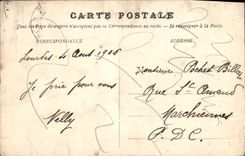 CARTE POSTALE
Tous les pays étrangers n'acceptent pas la Correspondance au recto. — Se renseigner à la Poste.
CORRESPONDANCE
ADRESSE
Lourdes 4 Août 1908
Je prie pour vous
Nelly
Monsieur Pochet Billy
Rue St Amand
Marchiennes
P. D. C.